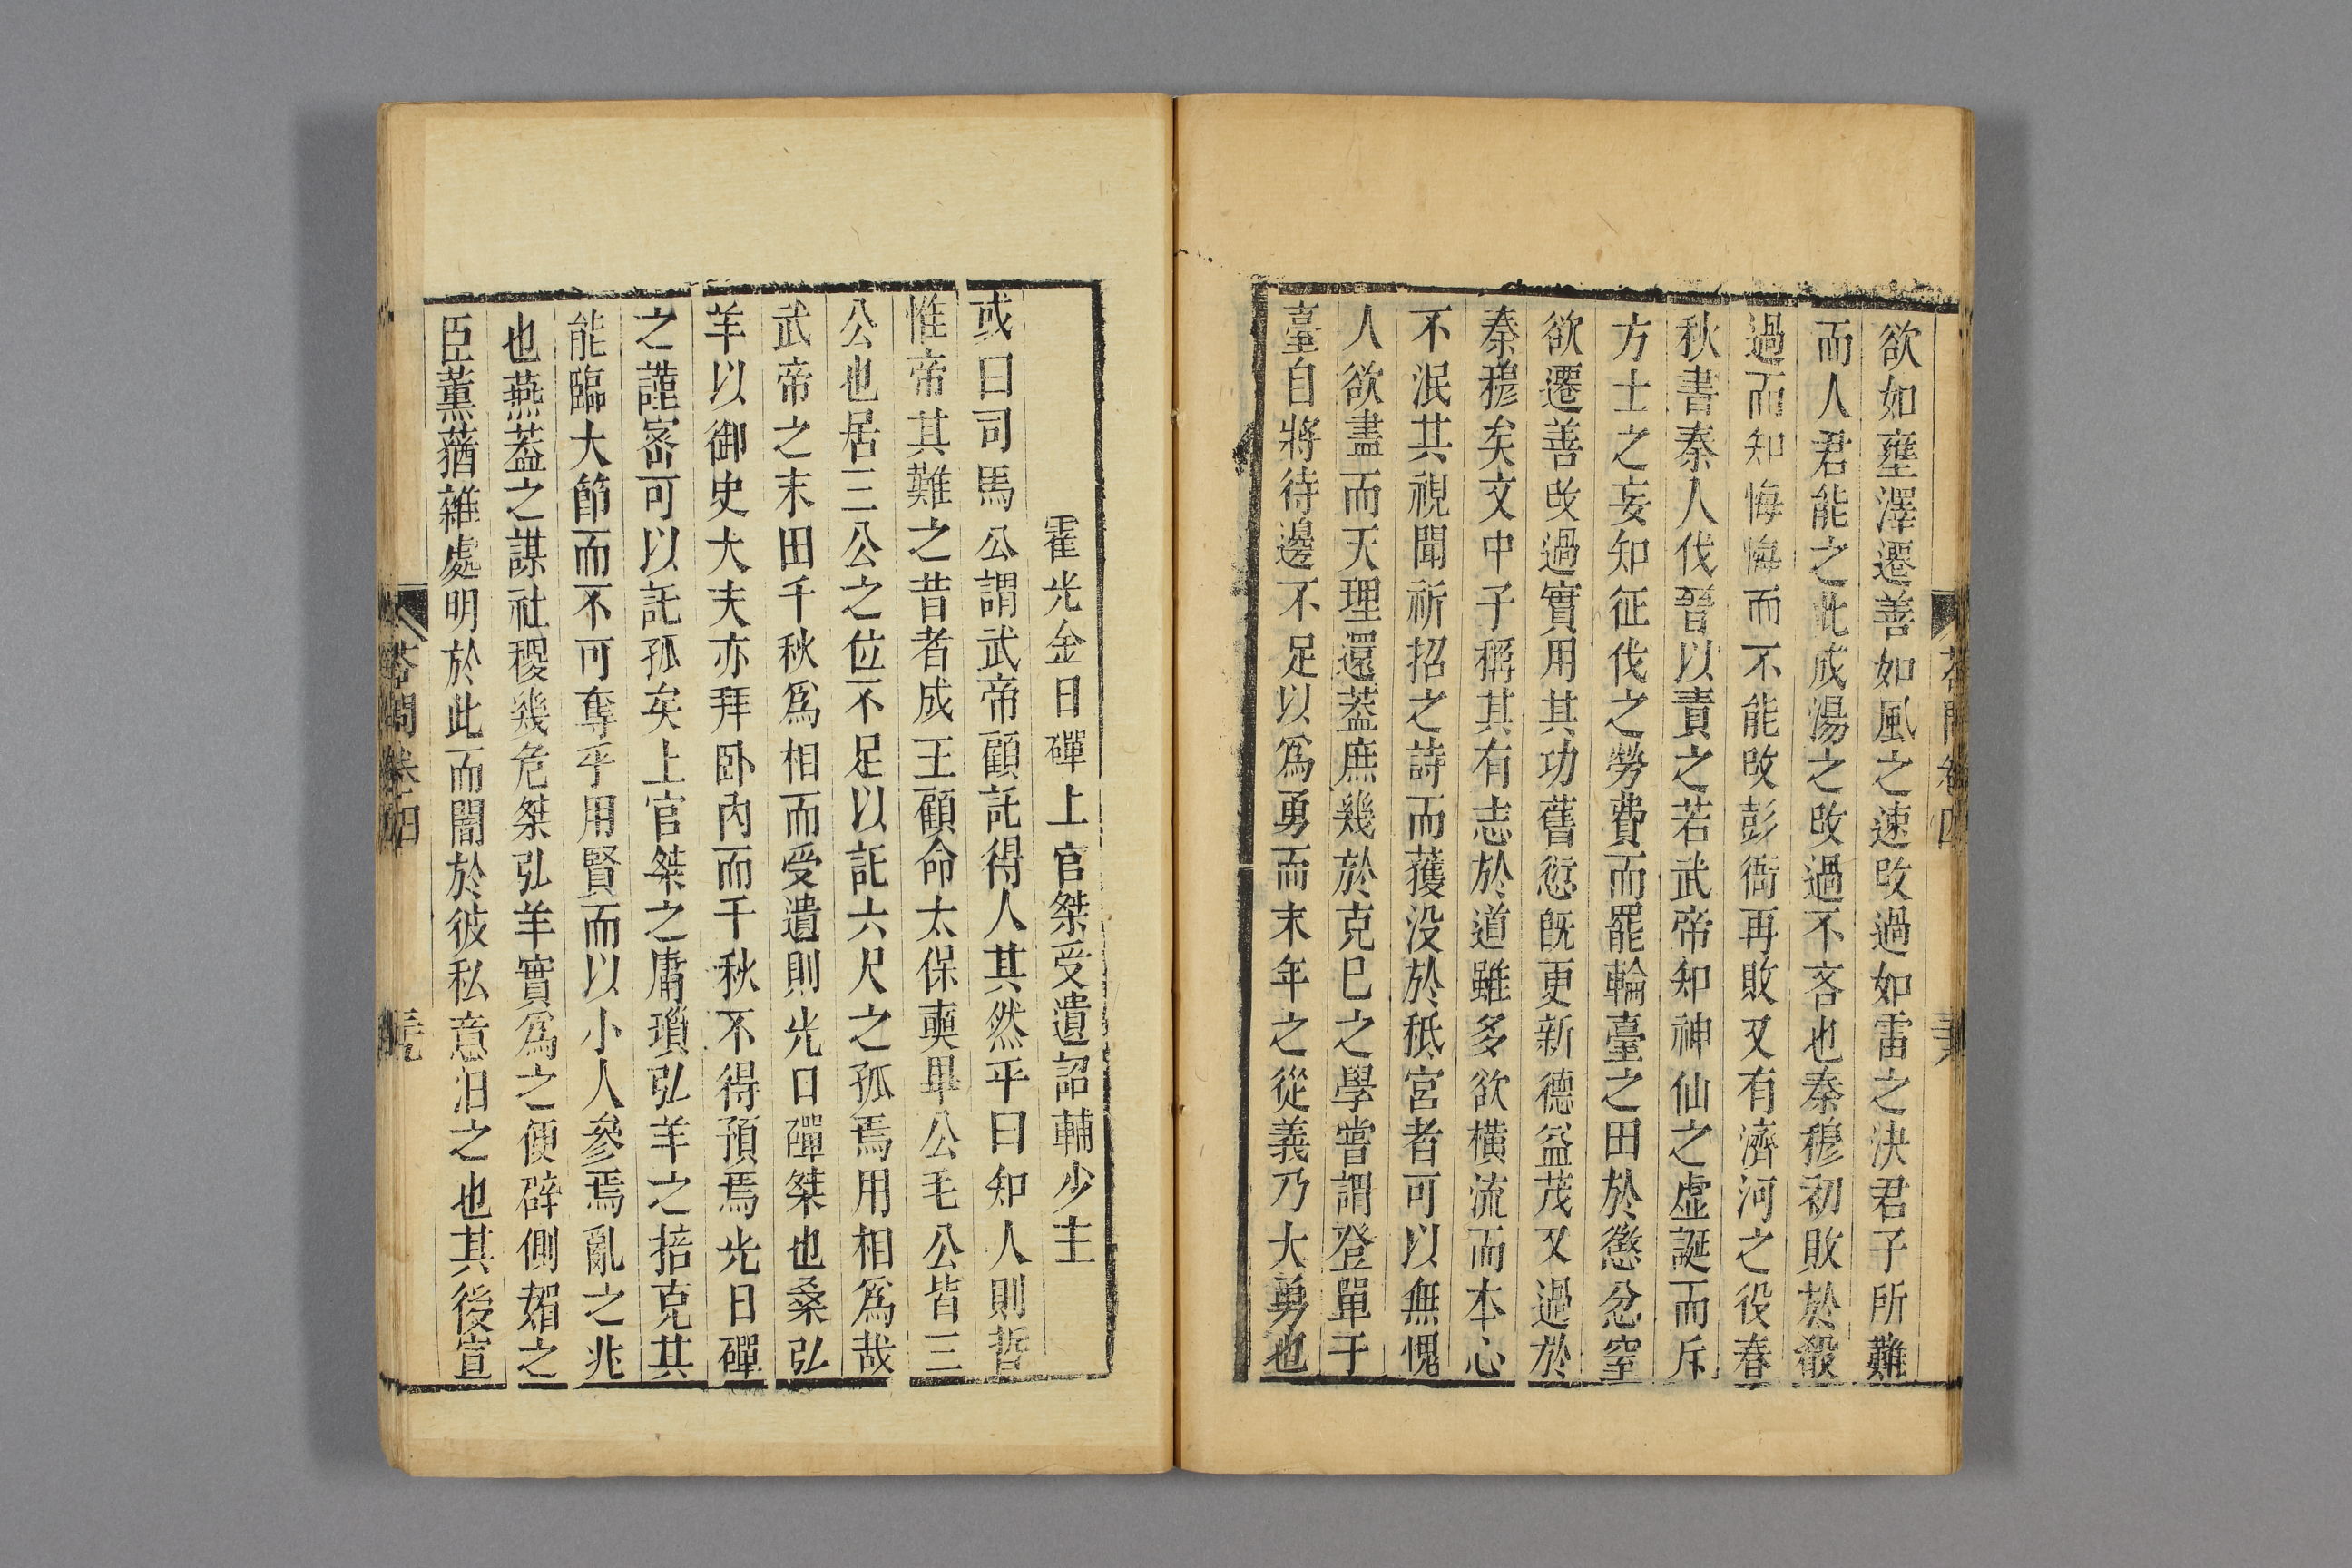 欲如壅澤遷善如風之速改過如雷之決君子所難
而人君能之此成湯之改過不吝也秦穆初敗於殽
過而知悔悔而不能改彭衙再敗又有濟河之役春
秋書秦人伐晉以責之若武帝知神仙之虛誕而斥
方士之妄知征伐之勞費而罷輪臺之田於懲忿窒
欲遷善改過實用其功舊愆旣更新德益茂又過於
秦穆矣文中子稱其有志於道雖多欲橫流而本心
不泯其視聞祈招之詩而獲沒於秪宮者可以無愧
人欲盡而天理還葢庶幾於克巳之學嘗謂登單于
臺自將待邊不足以爲勇而末年之從義乃大勇也
霍光金日磾上官桀受遺詔輔少主
或曰司馬公謂武帝顧託得人其然乎曰知人則哲
惟帝其難之昔者成王顧命太保奭畢公毛公皆三
公也居三公之位不足以託六尺之孤焉用相爲哉
武帝之末田千秋爲相而受遺則光日磾桀也桑弘
羊以御史大夫亦拜卧內而千秋不得預焉光日磾
之謹密可以託孤矣上官桀之庸瑣弘羊之掊克其
能臨大節而不可奪乎用賢而以小人參焉亂之兆
也燕葢之謀社稷幾危桀弘羊實爲之便辟側媚之
臣薰蕕雜處明於此而闇於彼私意汨之也其後宣
答問卷四